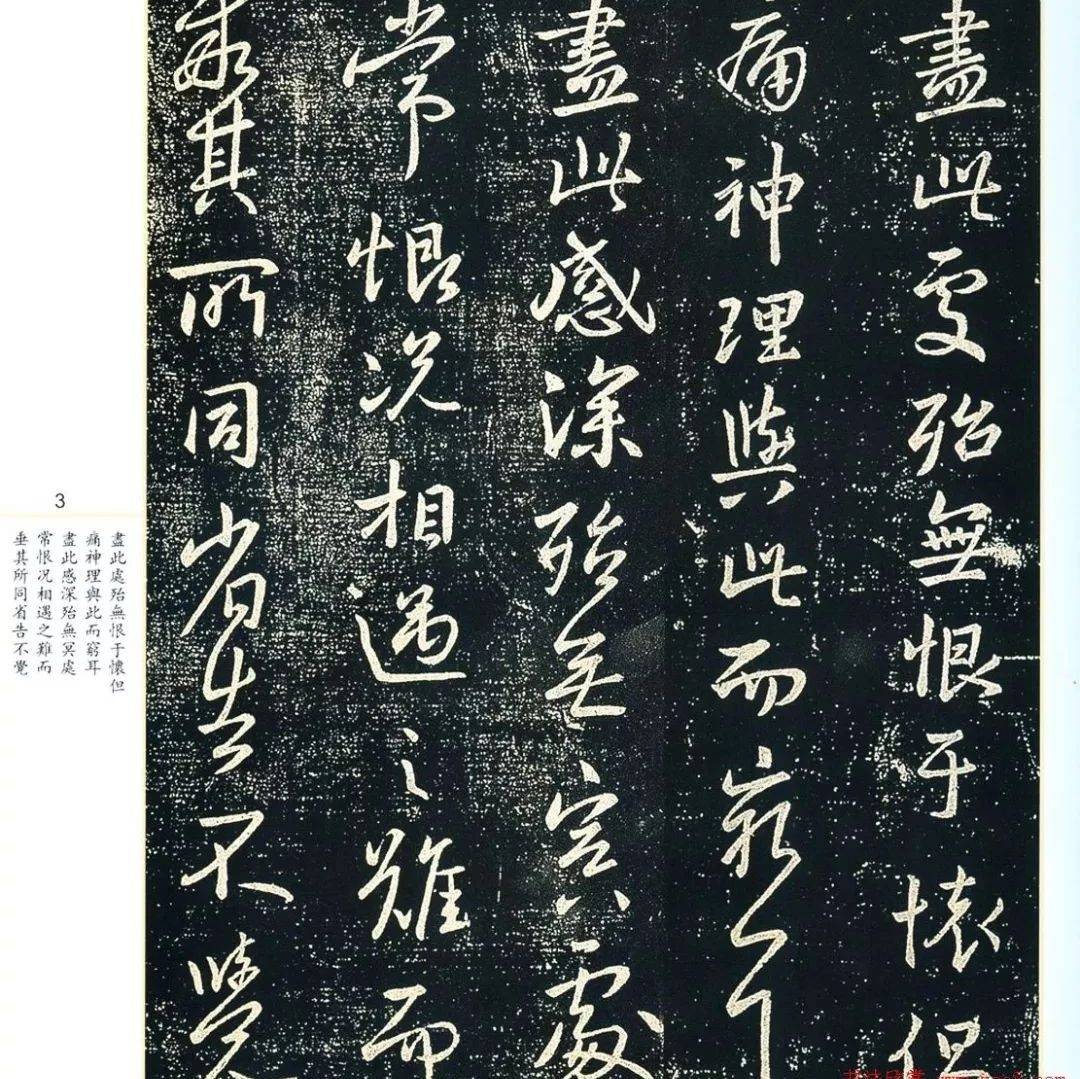 盡此處殆無恨于懷但
痛神理與此而窮耳
盡此感深殆無冥處
常恨况相遇之難而
乖其所同省告不覺
3
盡此處殆無恨于懷但
痛神理與此而窮耳
盡此感深殆無冥處
常恨况相遇之難而
垂其所同省告不覺